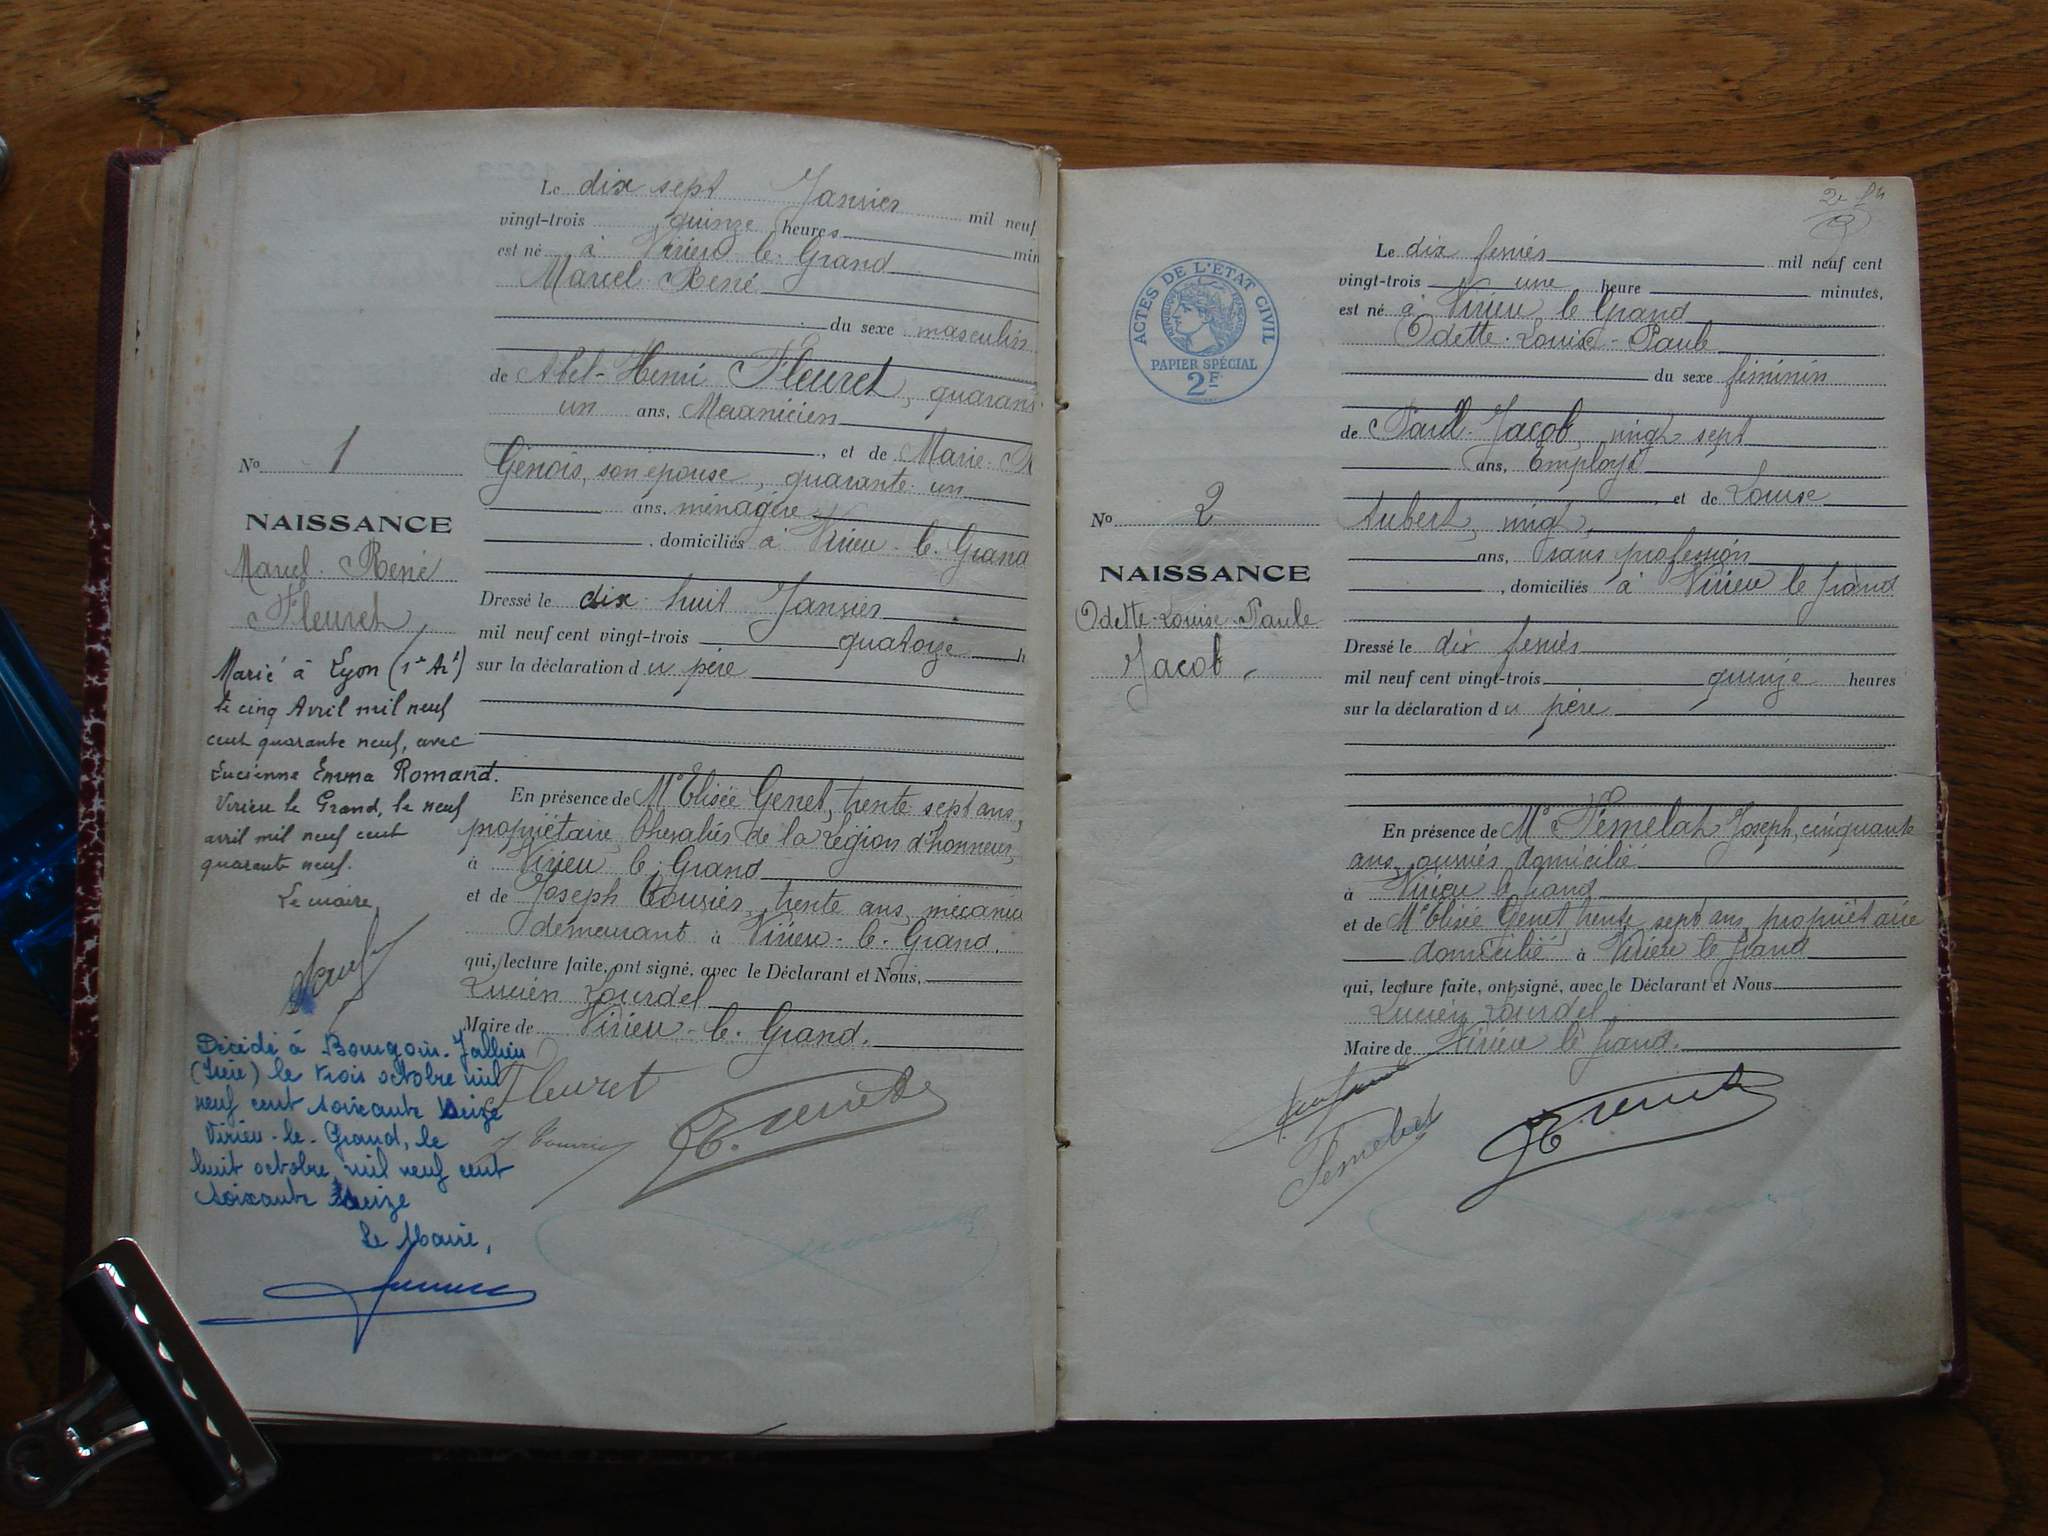 Le dix sept Janvier mil neuf
vingt-trois quinze heures
est né à Virieu le Grand min
Marcel René
du sexe masculin
de Abel-Henri Fleuret, quarante
un ans, Mécanicien
, et de Marie
Génois, son épouse, quarante un
ans, ménagère
, domiciliés à Virieu-le-Grand
Dressé le dix huit Janvier
mil neuf cent vingt-trois quatorze h
sur la déclaration du père
En présence de Mr Elisée Genet, trente sept ans,
propriétaire, Chevalier de la légion d'honneur,
à Virieu le Grand
et de Joseph Couvier, trente ans, mécanicie
demeurant à Virieu-le-Grand.
qui, lecture faite, ont signé, avec le Déclarant et Nous,
Lucien Lourdel
Maire de Virieu-le-Grand.
Fleuret
No 1
NAISSANCE
Marcel René
Fleuret
Marié à Lyon (1er Art)
le cinq Avril mil neuf
cent quarante neuf, avec
Lucienne Emma Romand.
Virieu le Grand, le neuf
avril mil neuf cent
quarante neuf.
Le maire
Décédé à Bourgoin-Jallieu
(Isère) le trois octobre mil
neuf cent soixante seize
Virieu-le-Grand, le
huit octobre mil neuf cent
soixante seize
Le Maire,
ACTES DE L'ETAT CIVIL
REPUBLIQUE FRANÇAISE
PAPIER SPÉCIAL
2F
No 2
NAISSANCE
Odette-Louise-Paule
Jacob
Le dix fevrier mil neuf cent
vingt-trois une heure minutes,
est né à Virieu le Grand
Odette-Louise-Paule
du sexe féminin
de Paul Jacob, vingt sept
ans, Employé
, et de Louise
Aubert, vingt,
ans, sans profession
, domiciliés à Virieu le Grand
Dressé le dix fevrier
mil neuf cent vingt-trois quinze heures
sur la déclaration du père
En présence de Mr Femelat Joseph, cinquante
ans, ouvrier, domicilié
à Virieu le Grand
et de Mr Elisée Genet, trente sept ans, propriétaire
domicilié à Virieu le Grand
qui, lecture faite, ont signé, avec le Déclarant et Nous
Lucien Lourdel
Maire de Virieu le Grand.
Femelat